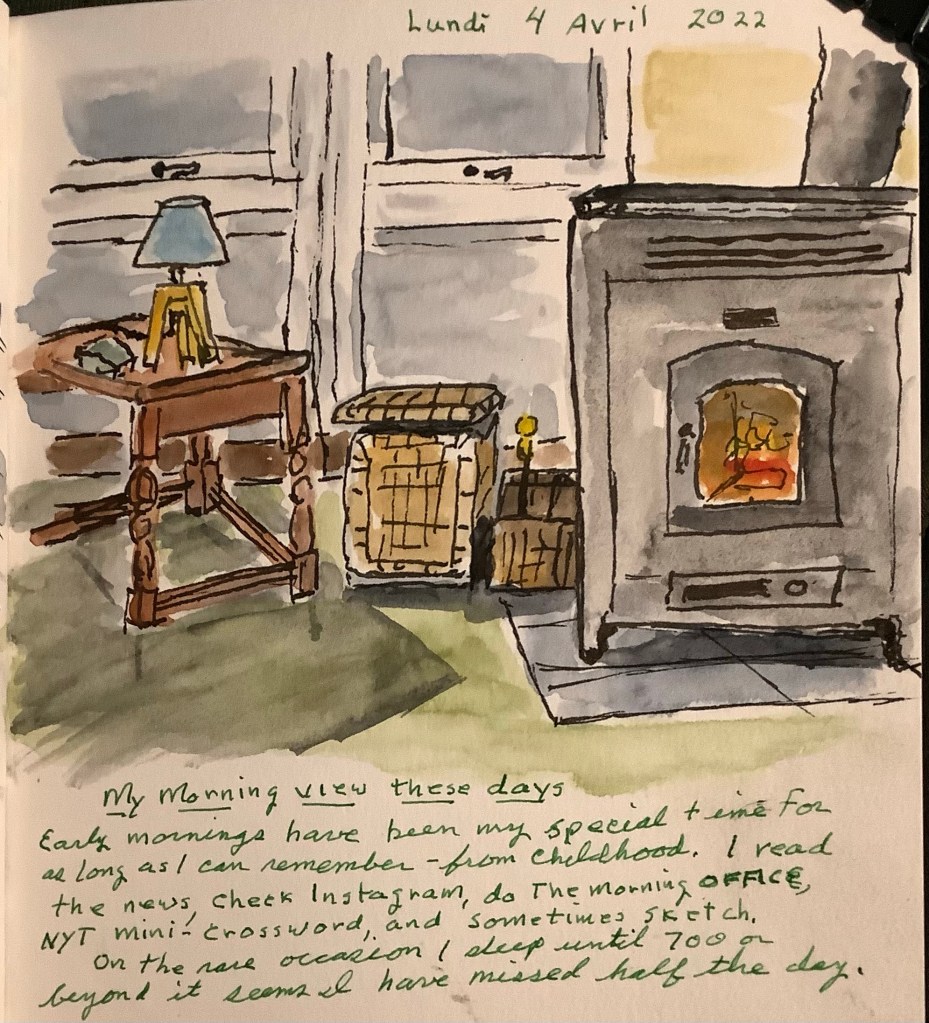 Lundi 4 Avril 2022
My Morning view these days
Early mornings have been my special time for
as long as I can remember - from childhood. I read
the news, check Instagram, do The Morning OFFICE,
NYT mini-crossword, and sometimes sketch.
On the rare occasion I sleep until 700 or
beyond it seems I have missed half the day.